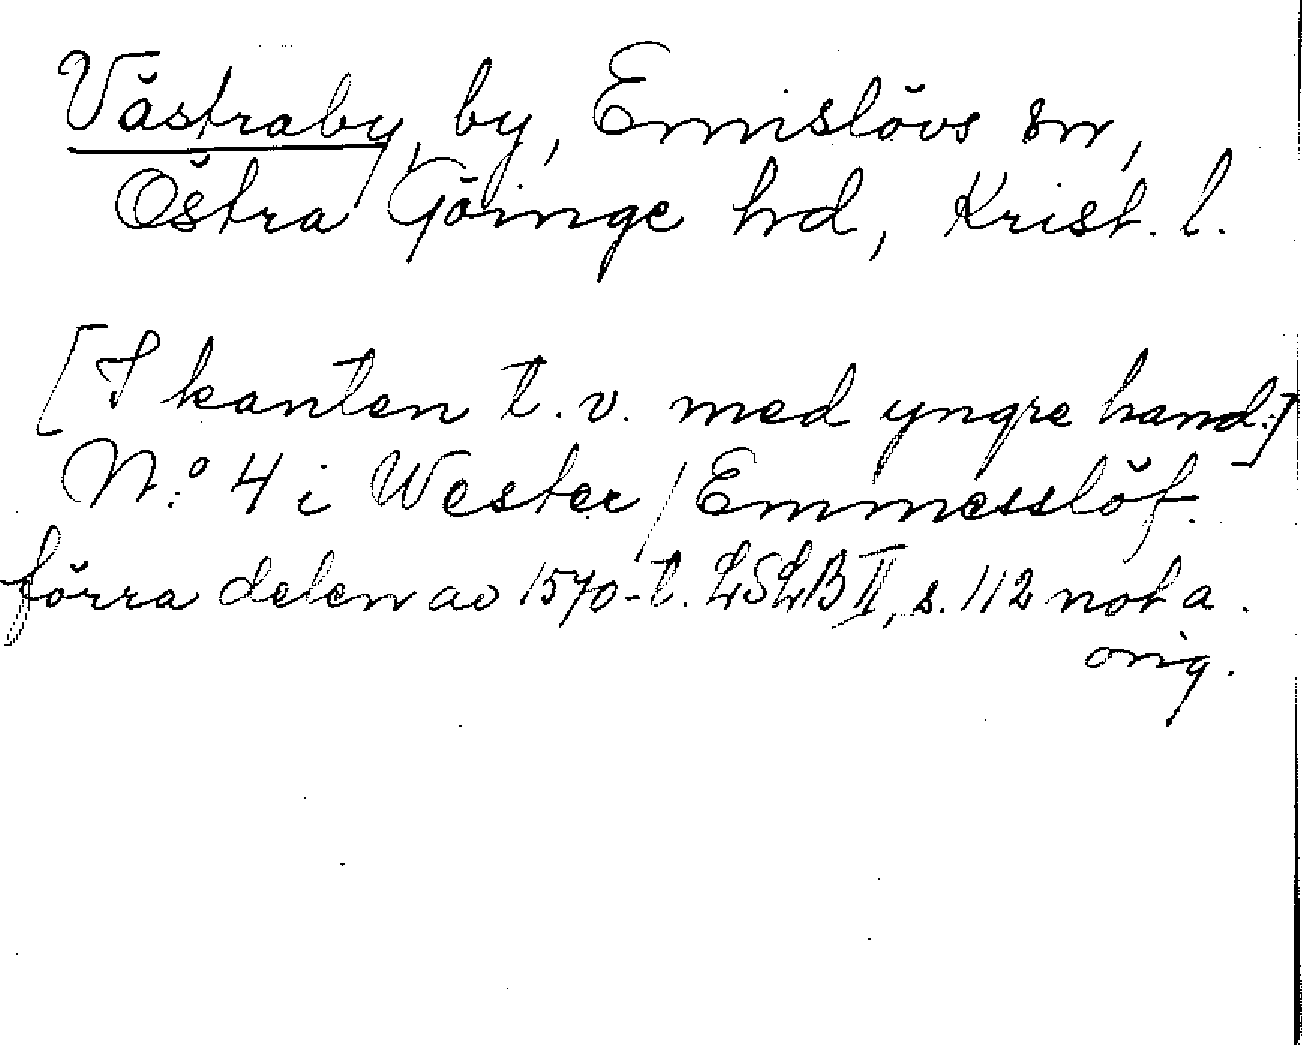 Västraby, by, Emislövs sn,
Östra Göinge hd, Krist. l.
[I kanten t.v. med yngre hand:]
N:o 4 i Wester / Emmesslöf.
förra delen av 1570-t. LSLB II, s. 112 not a.
orig.